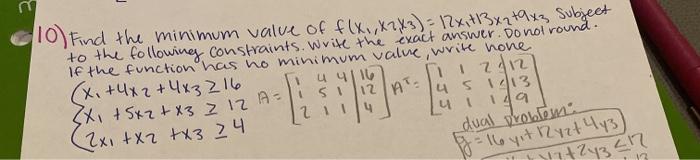 10) Find the minimum value of f(x₁,x₂,x₃) = 12x₁+13x₂+9x₃ Subject
to the following constraints. Write the exact answer. Do not round.
If the function has no minimum value, write none
x₁ + 4x₂ + 4x₃ ≥ 16
x₁ + 5x₂ + x₃ ≥ 12
2x₁ + x₂ + x₃ ≥ 4
A = [1 4 4 | 16
1 5 1 | 12
2 1 1 | 4]
Aᵀ = [1 1 2 ≤ 12
4 5 1 ≤ 13
4 1 1 ≤ 9]
dual problem:
g = 16y₁ + 12y₂ + 4y₃
+ 2y₃ ≤ 12